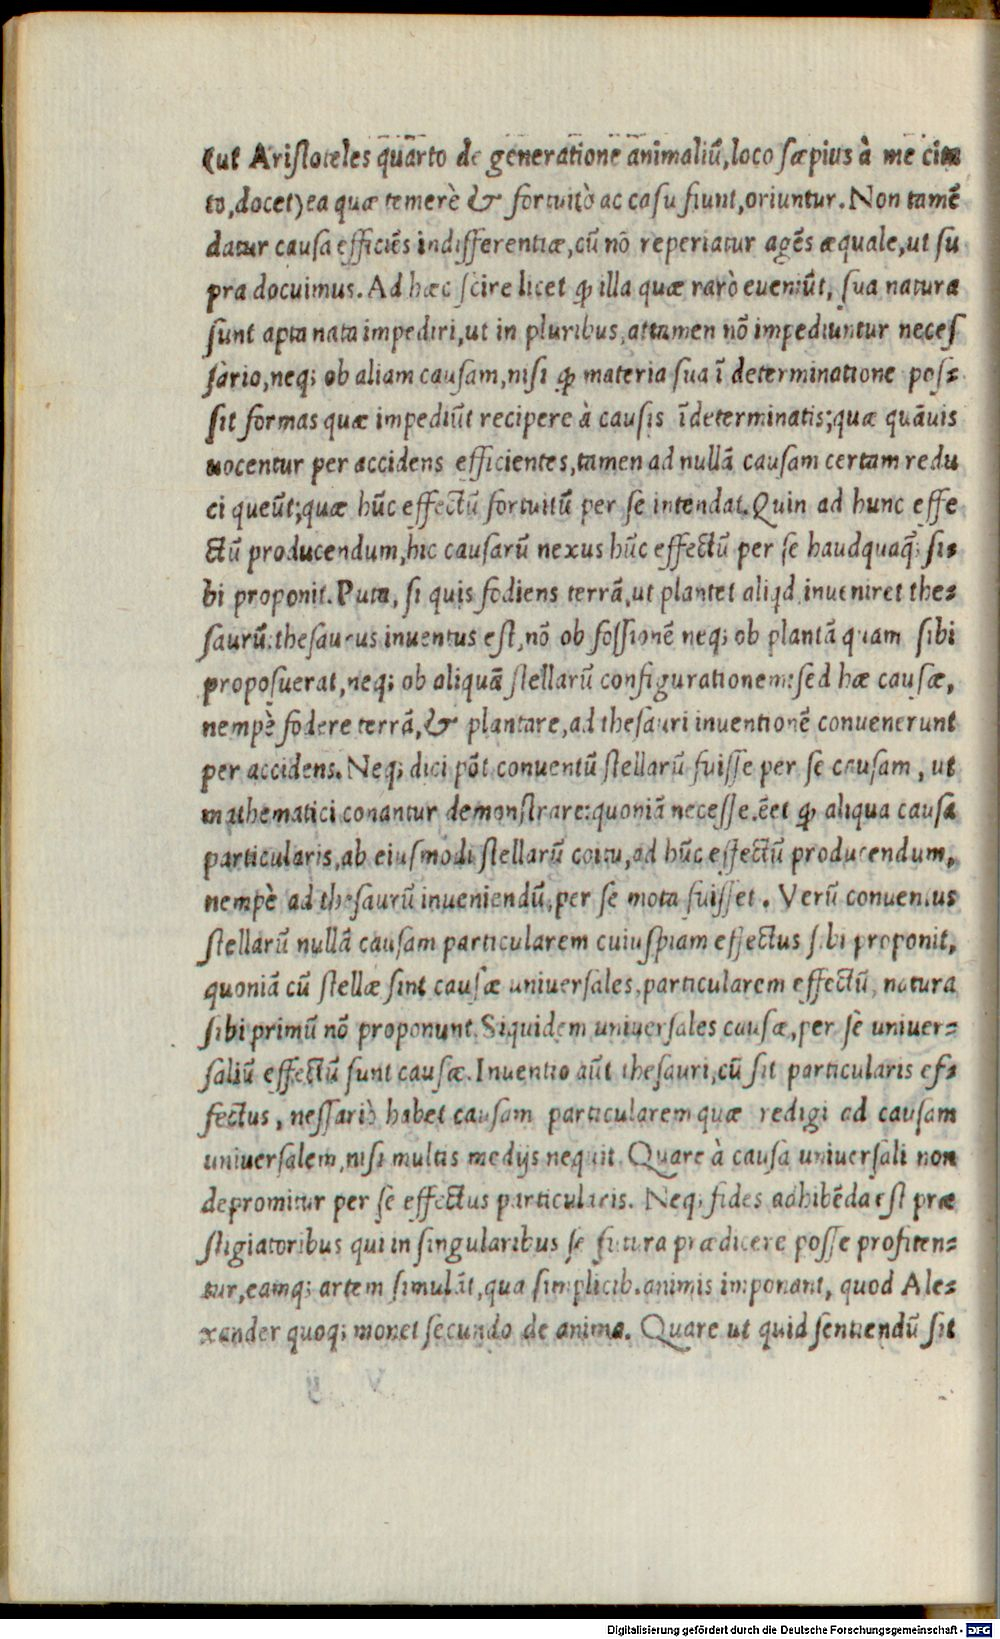 (ut Ariſtoteles quarto de generatione animaliũ, loco ſæpius à me cita
to, docet) ea quæ temerè & fortuitò ac caſu fiunt, oriuntur. Non tamẽ
datur cauſa efficiẽs indifferentiæ, cũ nõ reperiatur agẽs æquale, ut ſu
pra docuimus. Ad hæc ſcire licet ꝙ illa quæ rarò eveniũt, ſua natura
ſunt apta nata impediri, ut in pluribus, attamen nõ impediuntur neceſ
ſario, neq; ob aliam cauſam, niſi ꝙ materia ſua ĩ determinatione poſ⸗
ſit formas quæ impediũt recipere à cauſis ĩdeterminatis; quæ quãuis
uocentur per accidens efficientes, tamen ad nullã cauſam certam redu
ci queũt; quæ hũc effectũ fortuitũ per ſe intendat. Quin ad hunc effe
ctũ producendum, hic cauſarũ nexus hũc effectũ per ſe haudquaq̃; ſi⸗
bi proponit. Puta, ſi quis fodiens terrã, ut plantet aliqd inueniret the⸗
ſaurũ: theſaurus inuentus eſt, nõ ob foſſionẽ neq; ob plantã quam ſibi
propoſuerat, neq; ob aliquã ſtellarũ configurationem: ſed hæ cauſæ,
nempè fodere terrã, & plantare, ad theſauri inuentionẽ conuenerunt
per accidens. Neq; dici põt conuentũ ſtellarũ fuiſſe per ſe cauſam, ut
mathematici conantur demonſtrare: quoniã neceſſe.ẽet ꝙ aliqua cauſa
particularis, ab eiuſmodi ſtellarũ coitu, ad hũc effectũ producendum,
nempè ad theſaurũ inueniendũ, per ſe mota fuiſſet. Verũ conuentus
ſtellarũ nullã cauſam particularem cuiuſpiam effectus ſibi proponit,
quoniã cũ ſtellæ ſint cauſæ uniuerſales, particularem effectũ, natura
ſibi primũ nõ proponunt. Siquidem uniuerſales cauſæ, per ſe uniuer⸗
ſaliũ effectũ ſunt cauſæ. Inuentio aũt theſauri, cũ ſit particularis ef⸗
fectus, neſſariò habet cauſam particularem quæ redigi ad cauſam
uniuerſalem, niſi multis medijs nequit. Quare à cauſa uniuerſali non
depromitur per ſe effectus particularis. Neq; fides adhibẽda eſt præ
ſtigiatoribus qui in ſingularibus ſe futura prædicere poſſe profiten⸗
tur, eamq; artem ſimulãt, qua ſimplicib. animis imponant, quod Ale⸗
xander quoq; monet ſecundo de anima. Quare ut quid ſentiendũ ſit
Digitalisierung gefördert durch die Deutsche Forschungsgemeinschaft - DFG